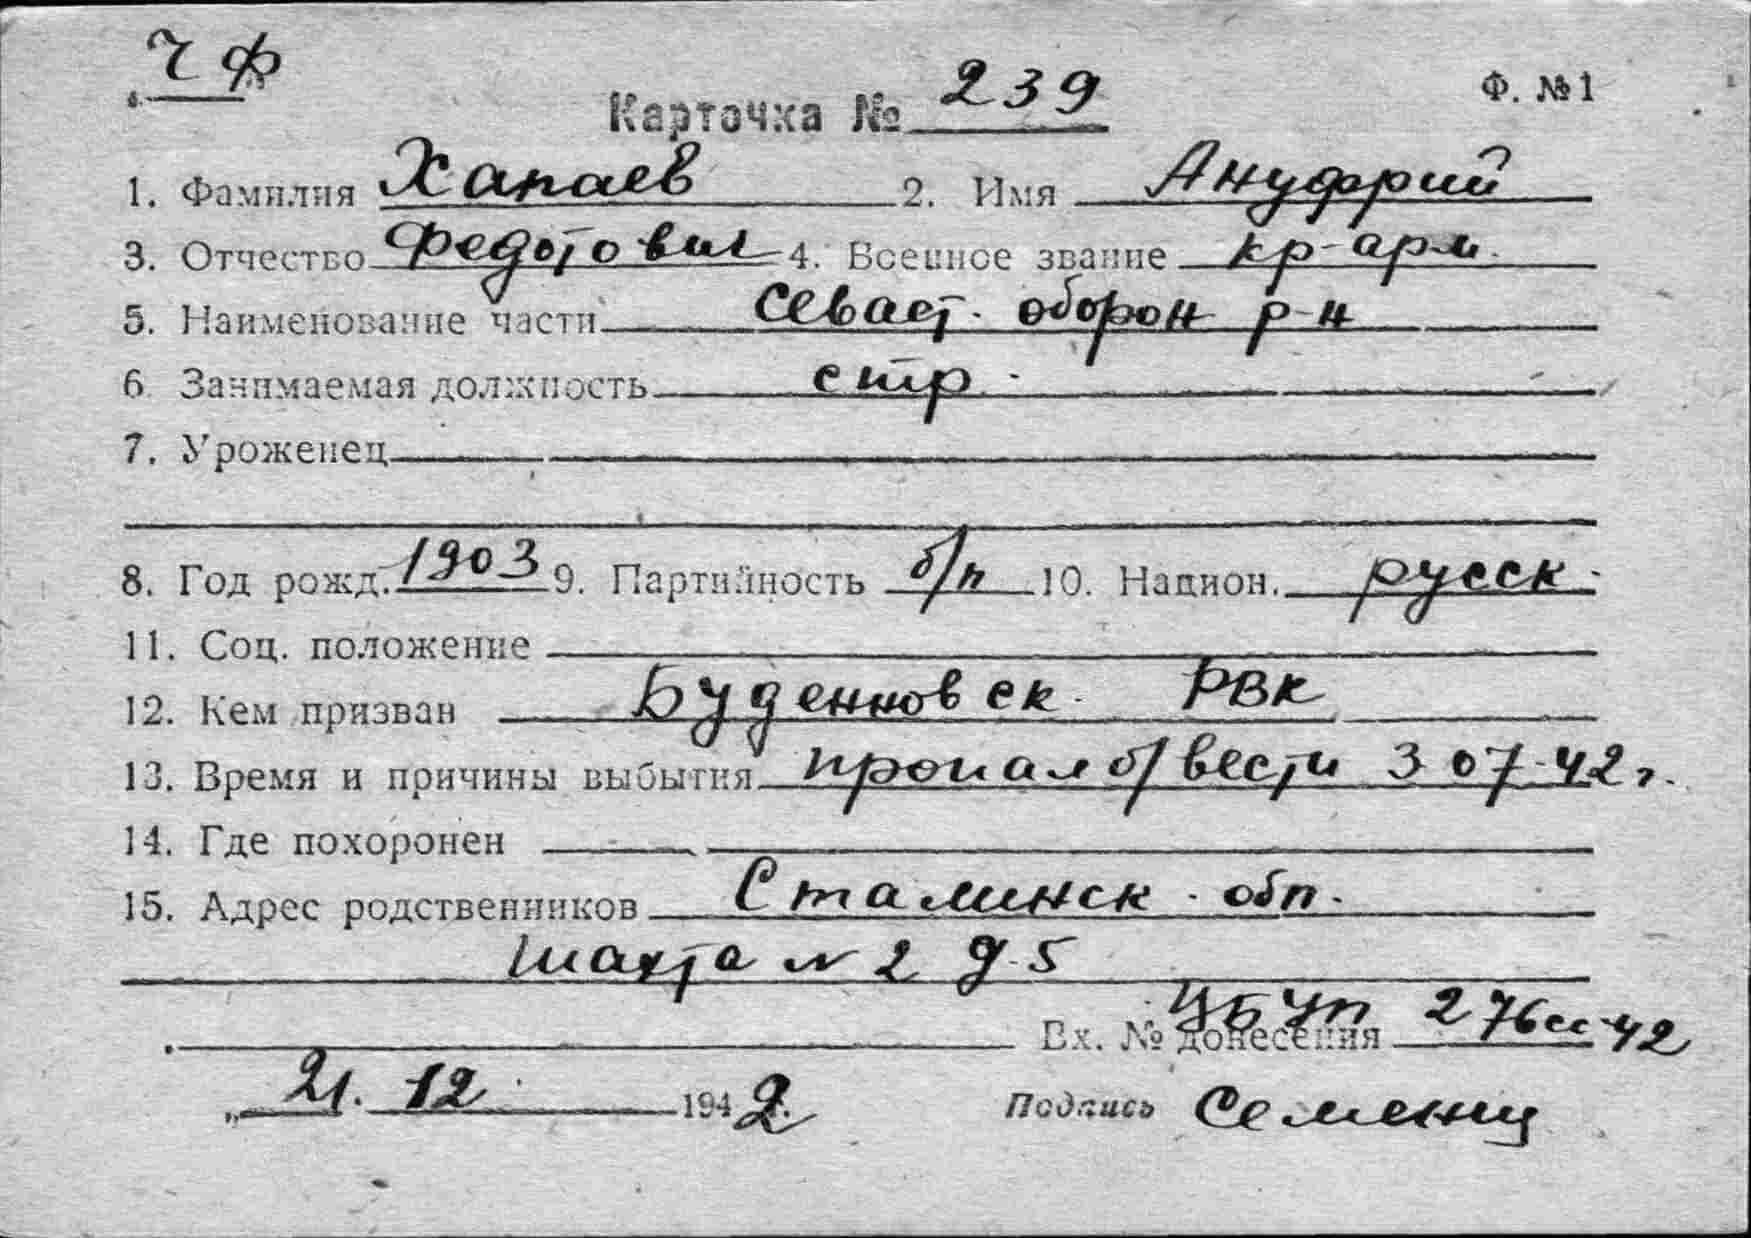 ЧФ
Ф. №1
Карточка № 239
1. Фамилия Хапаев 2. Имя Ануфрий
3. Отчество Федотович 4. Военное звание кр-арм.
5. Наименование части Севаст. оборон р-н
6 Занимаемая должность стр.
7. Уроженец
8. Год рожд. 1903 9. Партийность б/п 10. Национ. русск.
11. Соц. положение
12. Кем призван Буденновск. РВК
13. Время и причины выбытия пропал б/вести 3 07-42 г.
14. Где похоронен
15. Адрес родственников Сталинск. обл.
Шахта N 2 д. 5
ЦБ УП
Вх. № донесения 276сс-42
„21. 12. 1942.
Подпись Семенц